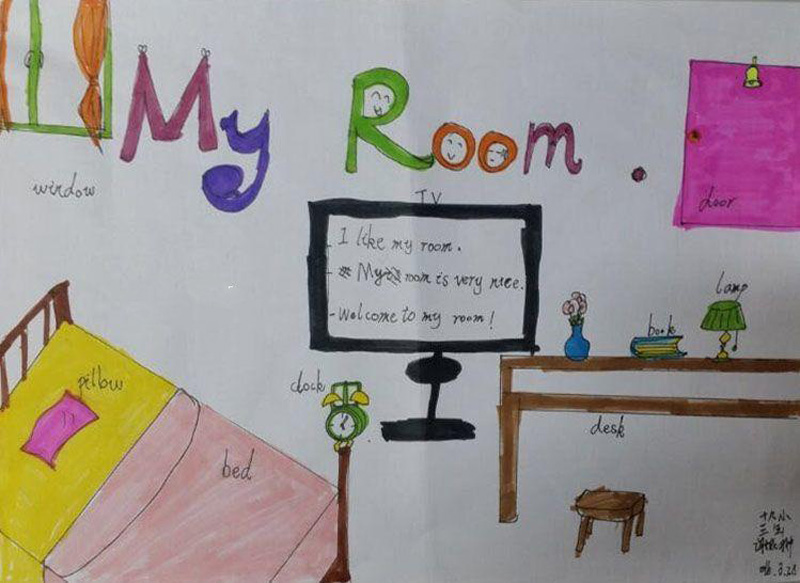 My Room.
window
door
TV
I like my room.
My room is very nice.
-Welcome to my room!
lamp
book
pillow
clock
desk
bed
十八小